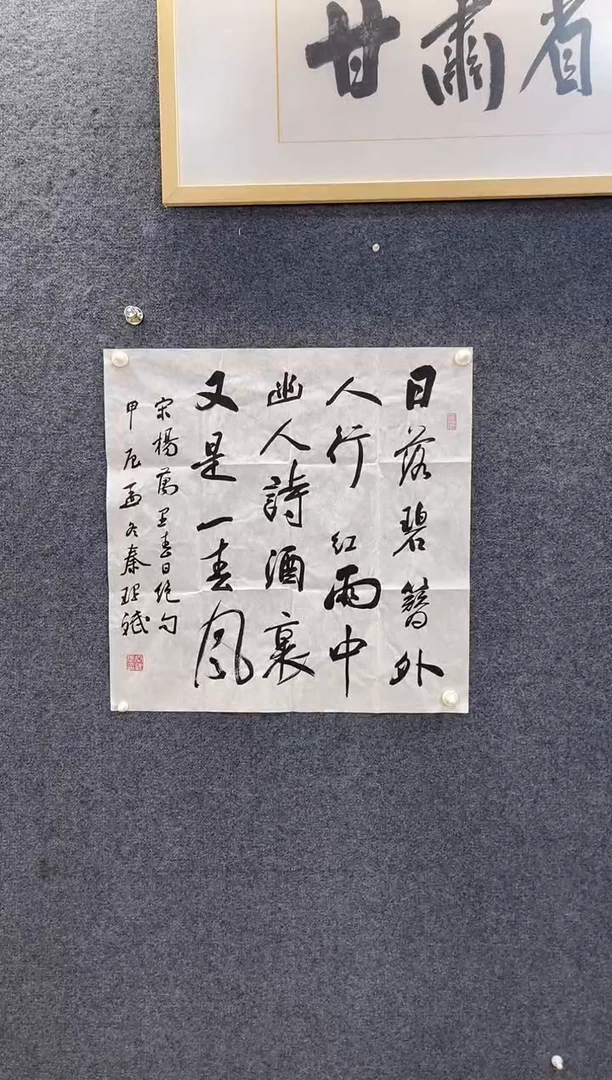 甘肅省
日落碧簪外
人行红雨中
幽人詩酒裏
又是一春風
宋楊萬里春日絶句
甲辰孟冬秦理斌